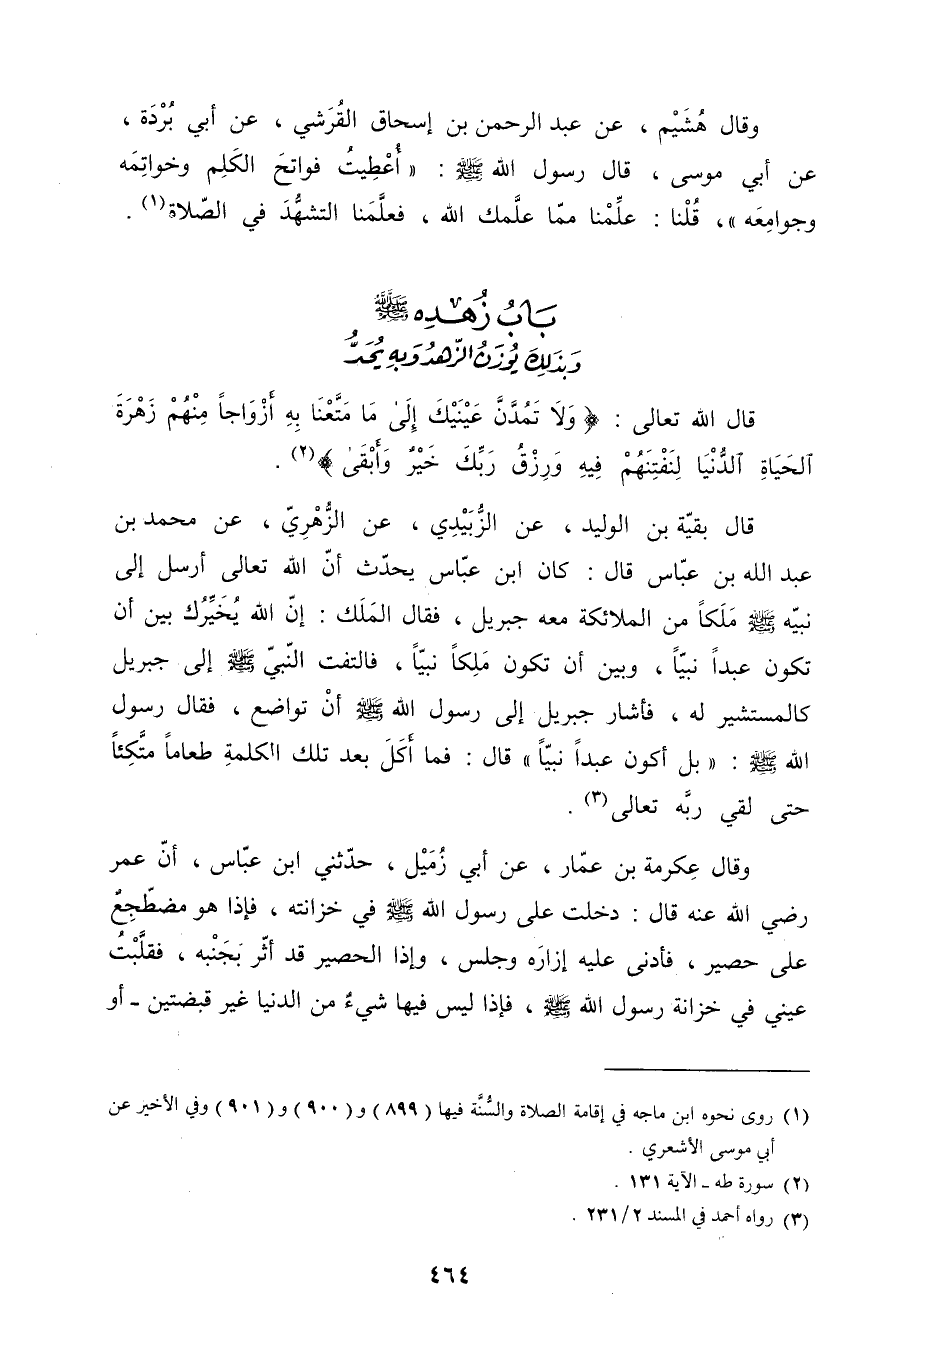 وقال هُشَيْم ، عن عبد الرحمن بن إسحاق القُرَشي ، عن أبي بُرْدَة ،
عن أبي موسى ، قال رسول الله ﷺ : « أُعْطِيتُ فواتحَ الكَلِم وخواتِمَه
وجوامِعَه » ، قُلْنا : علِّمْنا ممّا علَّمك الله ، فعلَّمَنا التشهُّدَ في الصّلاة(١) .
بَابُ زُهْدِه ﷺ
وَبذلِكَ يُوزَنُ الزّهدُ وَبهِ يُحَدُّ
قال الله تعالى : ﴿ وَلَا تَمُدَّنَّ عَيْنَيْكَ إِلَىٰ مَا مَتَّعْنَا بِهِ أَزْوَاجاً مِنْهُمْ زَهْرَةَ
ٱلحَيَاةِ ٱلدُّنْيَا لِنَفْتِنَهُمْ فِيهِ وَرِزْقُ رَبِّكَ خَيْرٌ وَأَبْقَىٰ ﴾(٢) .
قال بقيّة بن الوليد ، عن الزُّبَيْدِي ، عن الزُّهْرِيّ ، عن محمد بن
عبد الله بن عبّاس قال : كان ابن عبّاس يحدّث أنّ الله تعالى أرسل إلى
نبيّه ﷺ مَلَكاً من الملائكة معه جبريل ، فقال المَلَك : إنّ الله يُخَيِّرُك بين أن
تكون عبداً نبيّاً ، وبين أن تكون مَلِكاً نبيّاً ، فالتفت النّبيّ ﷺ إلى جبريل
كالمستشير له ، فأشار جبريل إلى رسول الله ﷺ أنْ تواضع ، فقال رسول
الله ﷺ : « بل أكون عبداً نبيّاً » قال : فما أَكَلَ بعد تلك الكلمةِ طعاماً متَّكِئاً
حتى لقي ربَّه تعالى(٣) .
وقال عِكرمة بن عمّار ، عن أبي زُمَيْل ، حدّثني ابن عبّاس ، أنّ عمر
رضي الله عنه قال : دخلت على رسول الله ﷺ في خزانته ، فإذا هو مضطّجِعٌ
على حصير ، فأدنى عليه إزارَه وجلس ، وإذا الحصير قد أثّر بَجَنْبه ، فقلَّبْتُ
عيني في خزانة رسول الله ﷺ ، فإذا ليس فيها شيءٌ من الدنيا غير قبضتين ـ أو
(١) روى نحوه ابن ماجه في إقامة الصلاة والسُّنَّة فيها ( ٨٩٩ ) و ( ٩٠٠ ) و ( ٩٠١ ) وفي الأخير عن
أبي موسى الأشعري .
(٢) سورة طه ـ الآية ١٣١ .
(٣) رواه أحمد في المسند ٢ / ٢٣١ .
٤٦٤